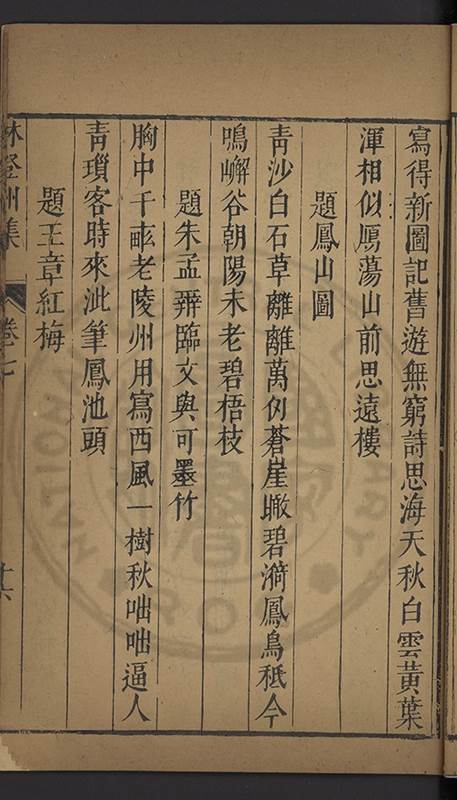 寫得新圖記舊遊無窮詩思海天秋白雲黃葉
渾相似鴈蕩山前思遠樓
題鳳山圖
青沙白石草離離萬仞蒼崖瞰碧漪鳳鳥秖今
鳴嶰谷朝陽未老碧梧枝
題朱孟辨臨文與可墨竹
胸中千畝老陵州用寫西風一樹秋咄咄逼人
青瑣客時來泚筆鳳池頭
題王章紅梅
林登州集
卷七
十六